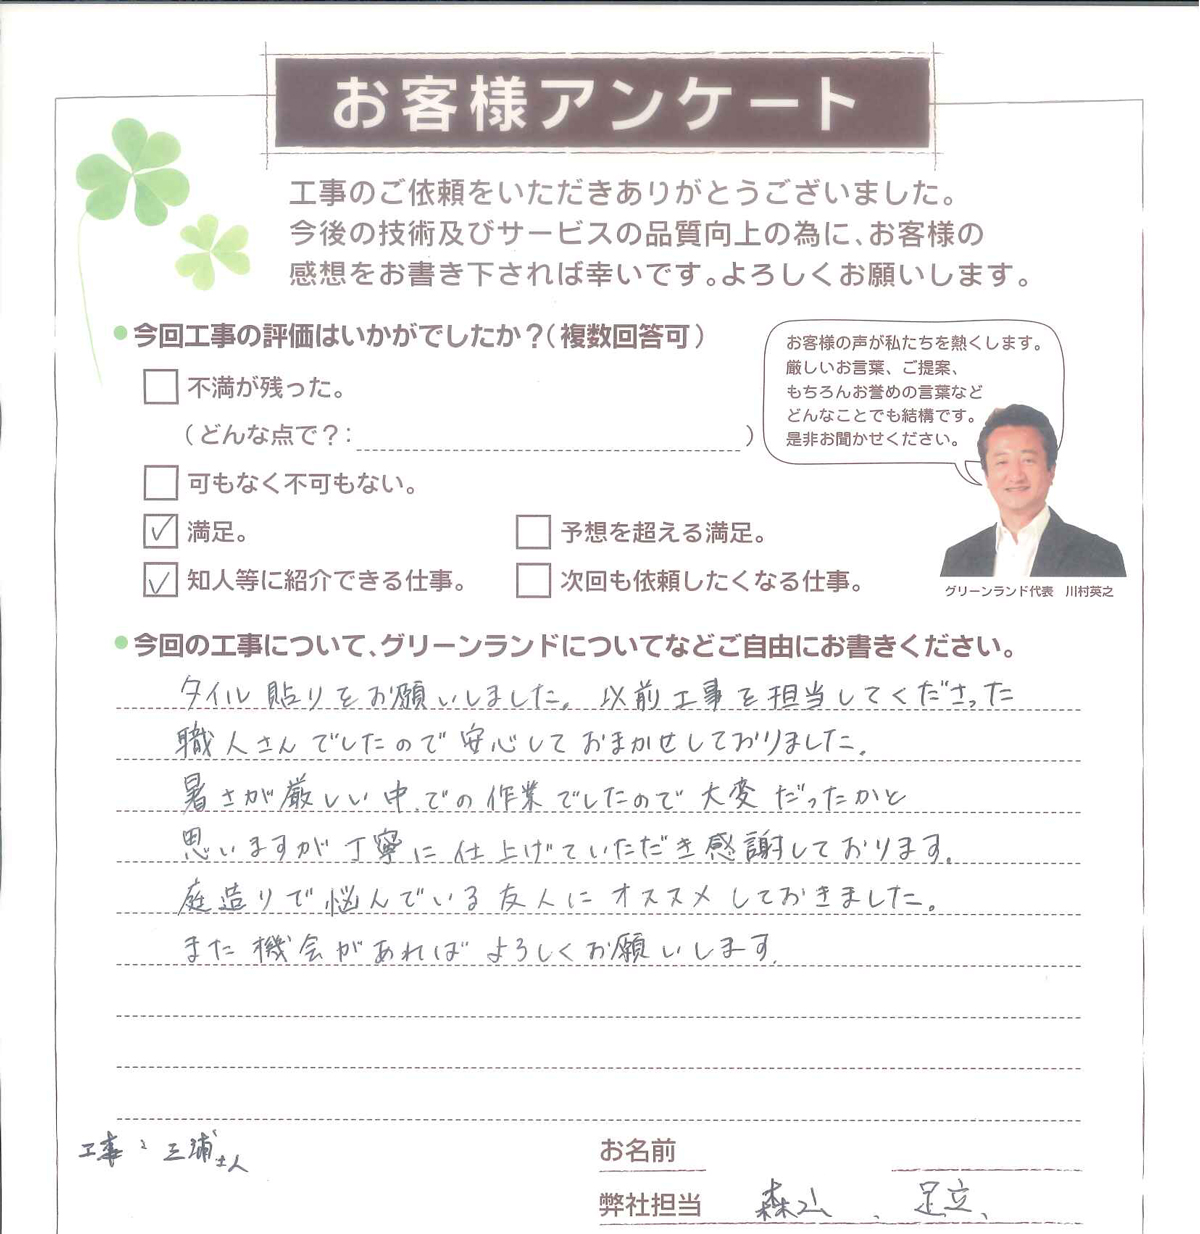 お客様アンケート
工事のご依頼をいただきありがとうございました。
今後の技術及びサービスの品質向上の為に、お客様の
感想をお書き下されば幸いです。よろしくお願いします。
今回工事の評価はいかがでしたか?(複数回答可)
不満が残った。
(どんな点で?: )
可もなく不可もない。
満足。
予想を超える満足。
知人等に紹介できる仕事。
次回も依頼したくなる仕事。
お客様の声が私たちを熱くします。
厳しいお言葉、ご提案、
もちろんお誉めの言葉など
どんなことでも結構です。
是非お聞かせください。
グリーンランド代表 川村英之
今回の工事について、グリーンランドについてなどご自由にお書きください。
タイル貼りをお願いしました。以前工事を担当してくださった
職人さんでしたので安心しておまかせしておりました。
暑さが厳しい中での作業でしたので大変だったかと
思いますが丁寧に仕上げていただき感謝しております。
庭造りで悩んでいる友人にオススメしておきました。
また機会があればよろしくお願いします。
工事:三浦さん
お名前
弊社担当 森山、足立、